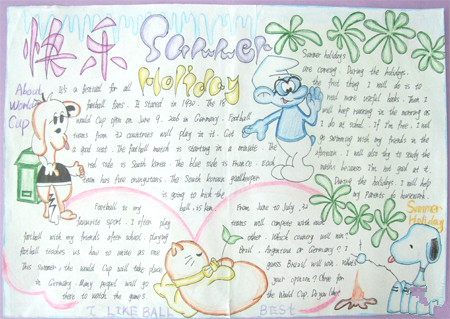 快乐
Summer
Holiday
About
World
Cup
It's a festival for all
football fans. It stared in 1930. The 18
world Cup open on June 9. 2nd in Germany. Football
teams from 32 countries will play in it. Got
a good seat. The football match is starting in a minute. The
red side is South Korea. The blue side is France. Each
team has five orangutans. The South Korean goalkeeper
is going to kick the
ball to him.
Football is my
favourite sport. I often play
football with my friends after school. playing
football teaches us how to unite as one.
This summer, the world Cup will take place
in Germany. Many people will go
there to watch the games.
From June to July, 32
teams will compete with each
other. Which country will win?
Brazil, Argentina or Germany? I
guess Brazil will win. What's
your opinion? Cheer for
the World Cup.
Summer holidays
are coming. During the holidays,
the first thing I will do is to
read more useful books. Then I
will keep running in the morning as
I do as usual. If I'm free, I will
go swimming with my friends in the
afternoon. I will also try to study the
maths because I'm not good at it.
During the holidays, I will help
my parents do homework.
Summer
Holiday
I LIKE BALL BEST